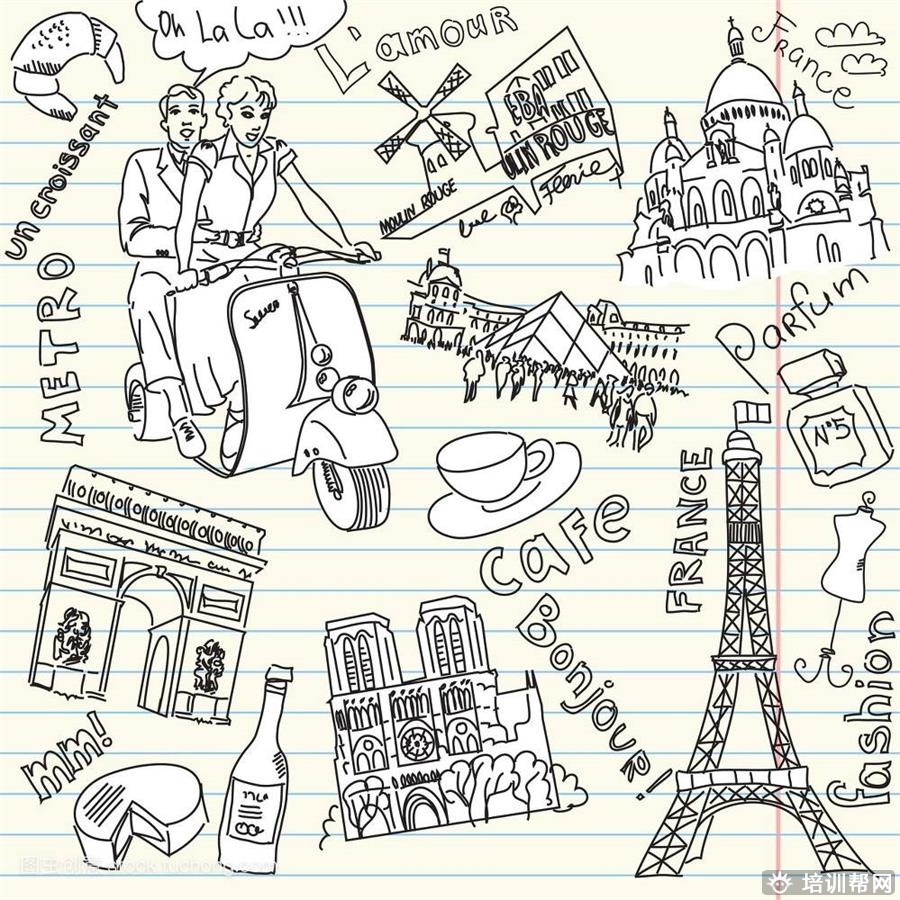 Oh La La!!!
L'amour
France
un croissant
EBA
ULIN ROUGE
MOULIN ROUGE
Féerie
METRO
Parfum
N°5
FRANCE
cafe
Bonjour!
fashion
mm!
图虫创意 stock.tuchong.com
培训帮网